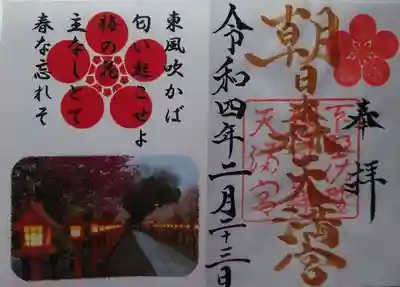 奉拝
朝日森天満宮
下野佐野
天満宮
令和四年二月二十三日
東風吹かば
匂い起こせよ
梅の花
主なしとて
春な忘れそ